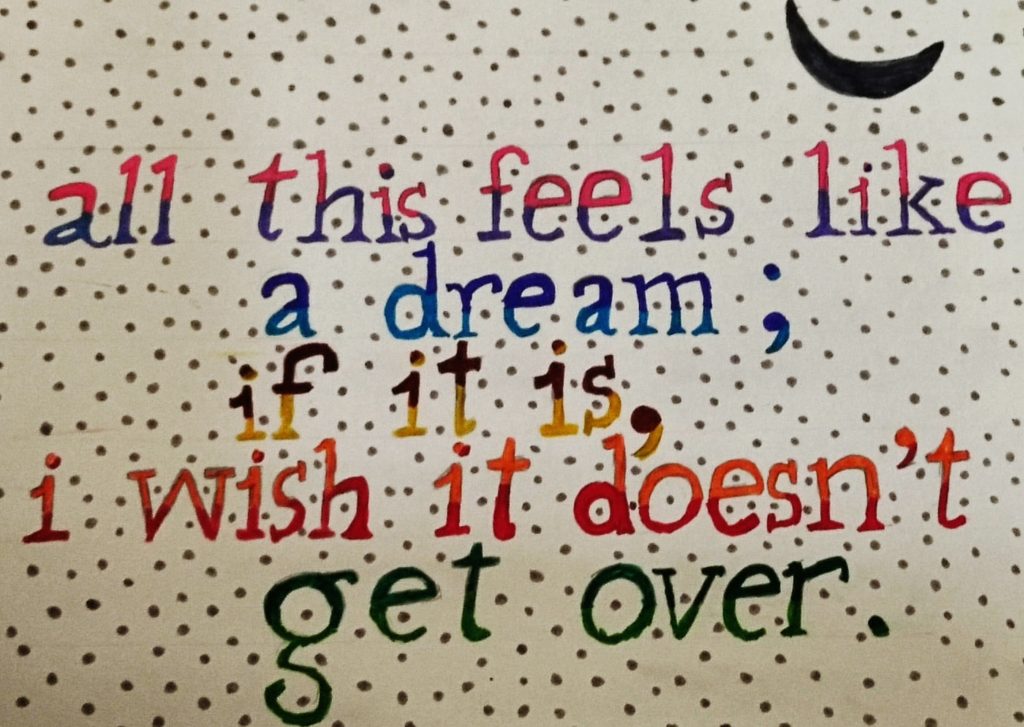 all this feels like
a dream ;
if it is,
i wish it doesn't
get over.